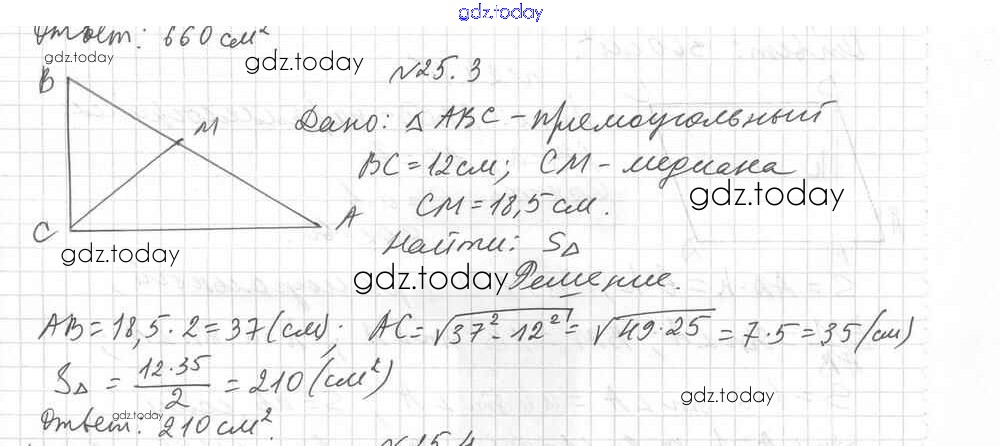 gdz.today
Ответ: 660 см²
gdz.today
gdz.today
N25.3
B
M
Дано: △ ABC - прямоугольный
BC = 12 см; CM - медиана
gdz.today
CM = 18,5 см.
A
C
Найти: S△
gdz.today
gdz.today
Решение.
AB = 18,5 · 2 = 37 (см); AC = √37² - 12² = √49·25 = 7·5 = 35 (см)
S△ = 12·35/2 = 210 (см²)
gdz.today
gdz.today
Ответ: 210 см².